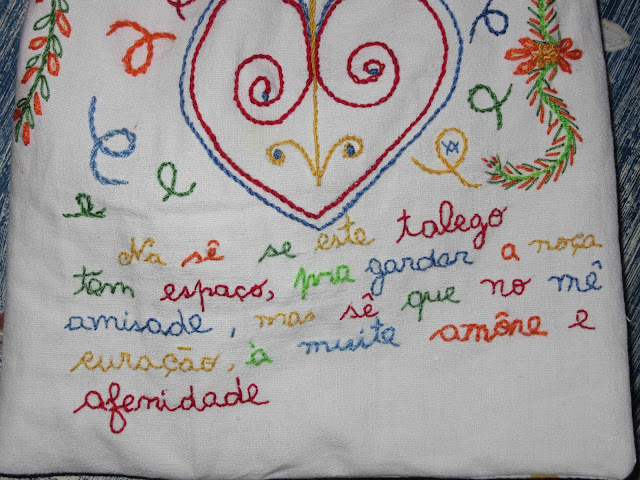 Nã sê se este talego
tãm espaço, pra gardar a noça
amisade, mas sê que no mê
curação, à muite amône e
afenidade